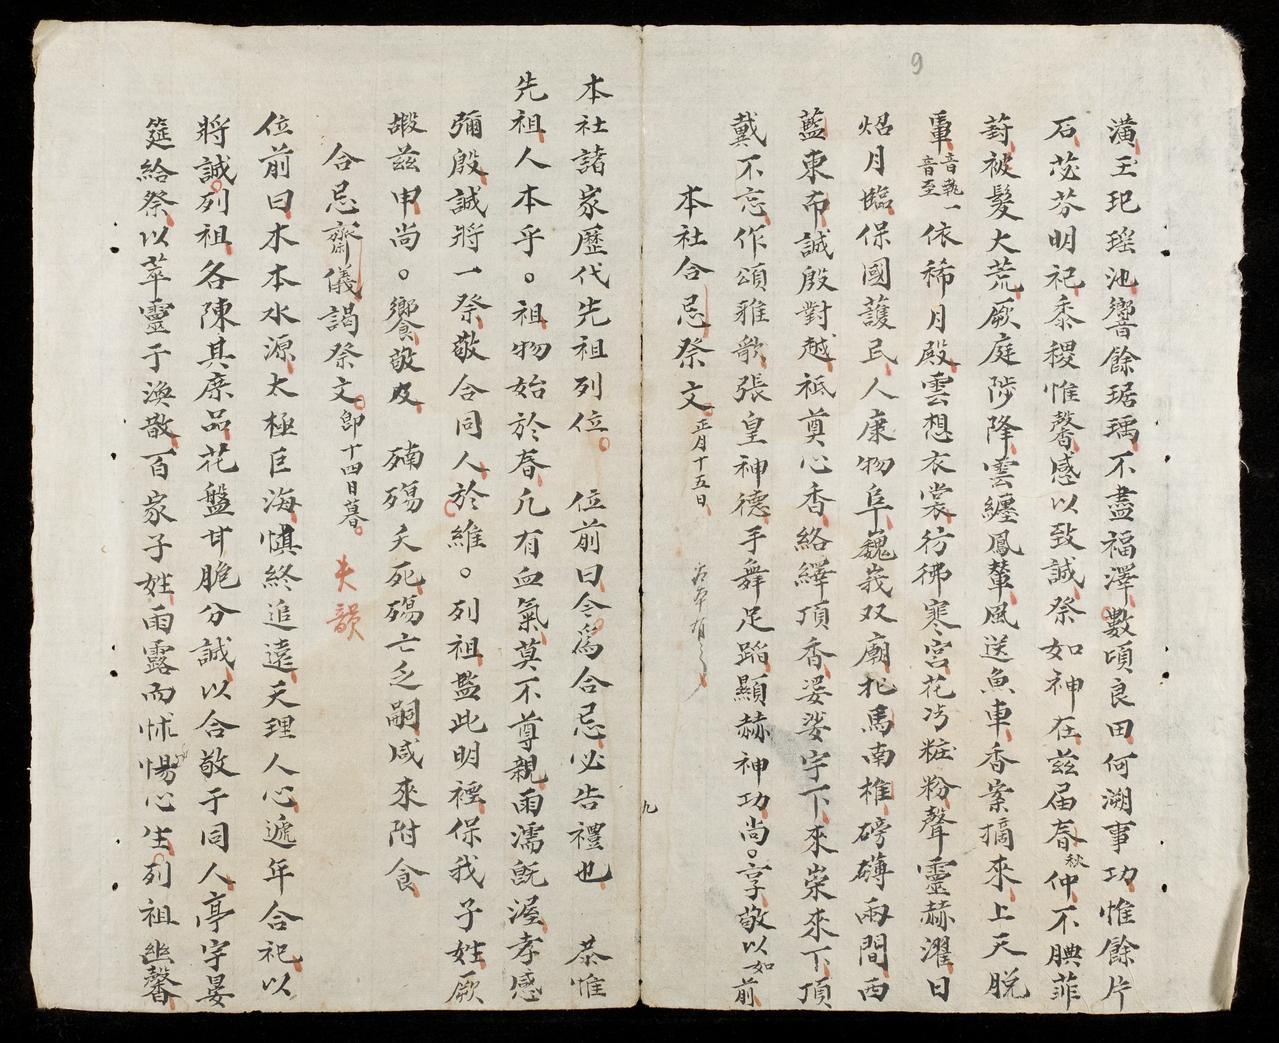 9
潢玉玘瑶池響餘琚瑀不盡福澤數頃良田何溯事功惟餘片
石苾芬明祀黍稷惟馨感以致誠祭如神在茲届春秋仲不腆菲
葑被髮大荒厥庭陟降雲纏鳳輦風送魚車香案摘來上天脫
音執音至一依稀月殿雲想衣裳彷彿寒宮花沾粧粉聲靈赫濯日
炤月臨保國護民人康物阜巍峩双廟北馬南椎磅礡兩間西
藍東布誠殷對越祗奠心香絡繹頂香婆娑宇下來崇來下頂
戴不忘作頌雅歌張皇神德手舞足蹈顯赫神功尚享敬以如前
本社合忌祭文正月十五日
九
本社諸家歷代先祖列位 位前曰今爲合忌必告禮也 恭惟
先祖人本乎祖物始於春凡有血氣莫不尊親雨濡旣渥孝感
彌殷誠將一祭敬合同人於維列祖鑑此明禋保我子姓厥
嘏茲申尚饗敬及 殤夭死殤亡乏嗣咸來附食
合忌齋儀謁祭文卽十四日暮 夫韻
位前曰木本水源太極巨海愼終追遠天理人心遞年合祀以
將誠列祖各陳其庶品花盤甘脆分誠以合敬于同人亭宇晏
筵給祭以萃靈于渙散百家子姓雨露而怵惕心生列祖幽馨